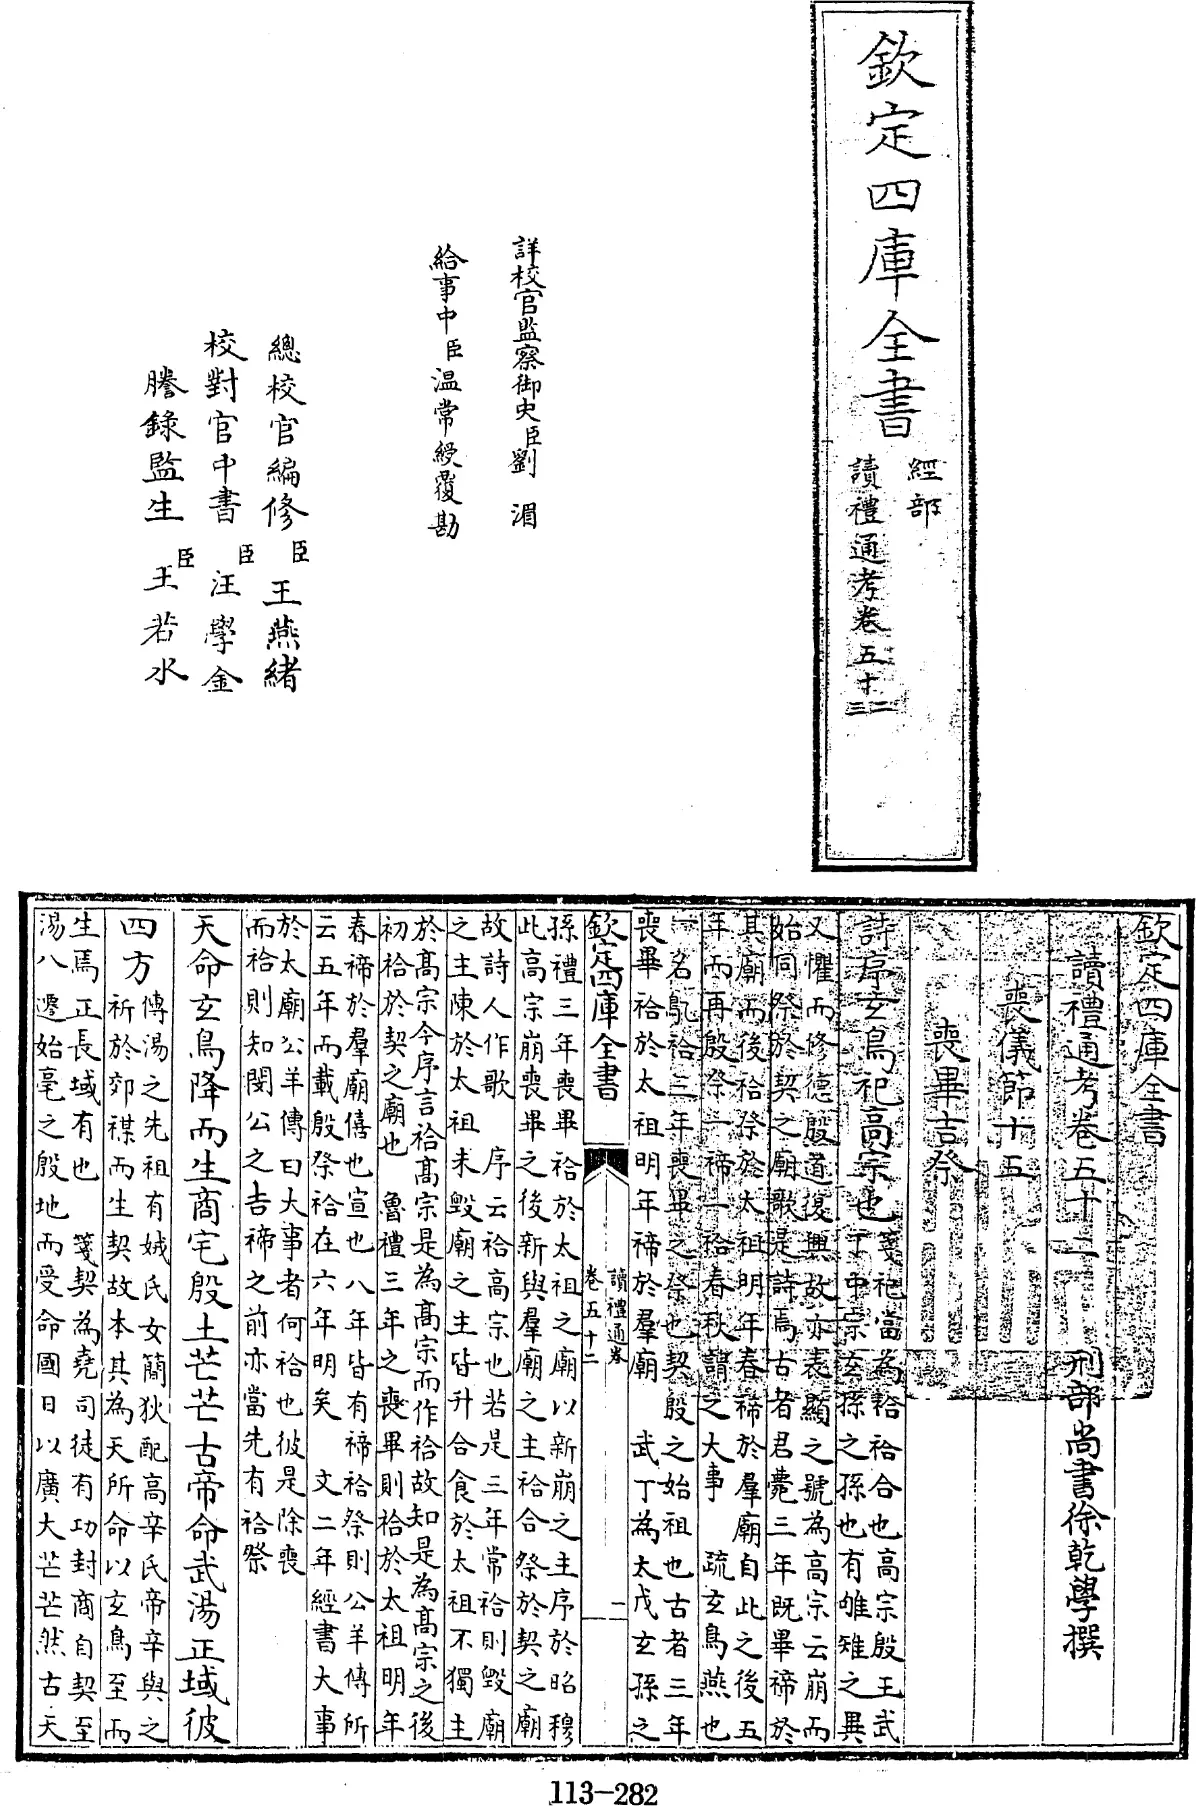 欽定四庫全書
經部
讀禮通考卷五十二
三
詳校官監察御史臣劉湄
給事中臣温常綬覆勘
總校官編修臣王燕緒
校對官中書臣汪學金
謄錄監生臣王若水
欽定四庫全書
讀禮通考卷五十二 刑部尚書徐乾學撰
喪儀節十五
喪畢吉祭
詩序玄鳥祀高宗也箋祀當為祫祫合也高宗殷王武
丁中宗玄孫之孫也有雊雉之異
又懼而修德殷道復興故亦表顯之號為高宗云崩而
始同祭於契之廟歌是詩焉古者君薨三年既畢禘於
其廟而後祫祭於太祖明年春禘於羣廟自此之後五
年而再殷祭一禘一祫春秋謂之大事 疏玄鳥燕也
一名鳦祫三年喪畢之祭也契殷之始祖也古者三年
喪畢祫於太祖明年禘於羣廟 武丁為太戊玄孫之
欽定四庫全書 讀禮通考
卷五十二 一
孫禮三年喪畢祫於太祖之廟以新崩之主序於昭穆
此高宗崩喪畢之後新與羣廟之主祫合祭於契之廟
故詩人作歌 序云祫高宗也若是三年常祫則毀廟
之主陳於太祖未毀廟之主皆升合食於太祖不獨主
於高宗今序言祫高宗是為高宗而作祫故知是為高宗之後
初祫於契之廟也 魯禮三年之喪畢則祫於太祖明年
春禘於羣廟僖也宣也八年皆有禘祫祭則公羊傳所
云五年而載殷祭祫在六年明矣 文二年經書大事
於太廟公羊傳曰大事者何祫也彼是除喪
而祫則知閔公之吉禘之前亦當先有祫祭
天命玄鳥降而生商宅殷土芒芒古帝命武湯正域彼
四方傳湯之先祖有娀氏女簡狄配高辛氏帝辛與之
祈於郊禖而生契故本其為天所命以玄鳥至而
生焉正長域有也 箋契為堯司徒有功封商自契至
湯八遷始亳之殷地而受命國日以廣大芒芒然古天
113-282